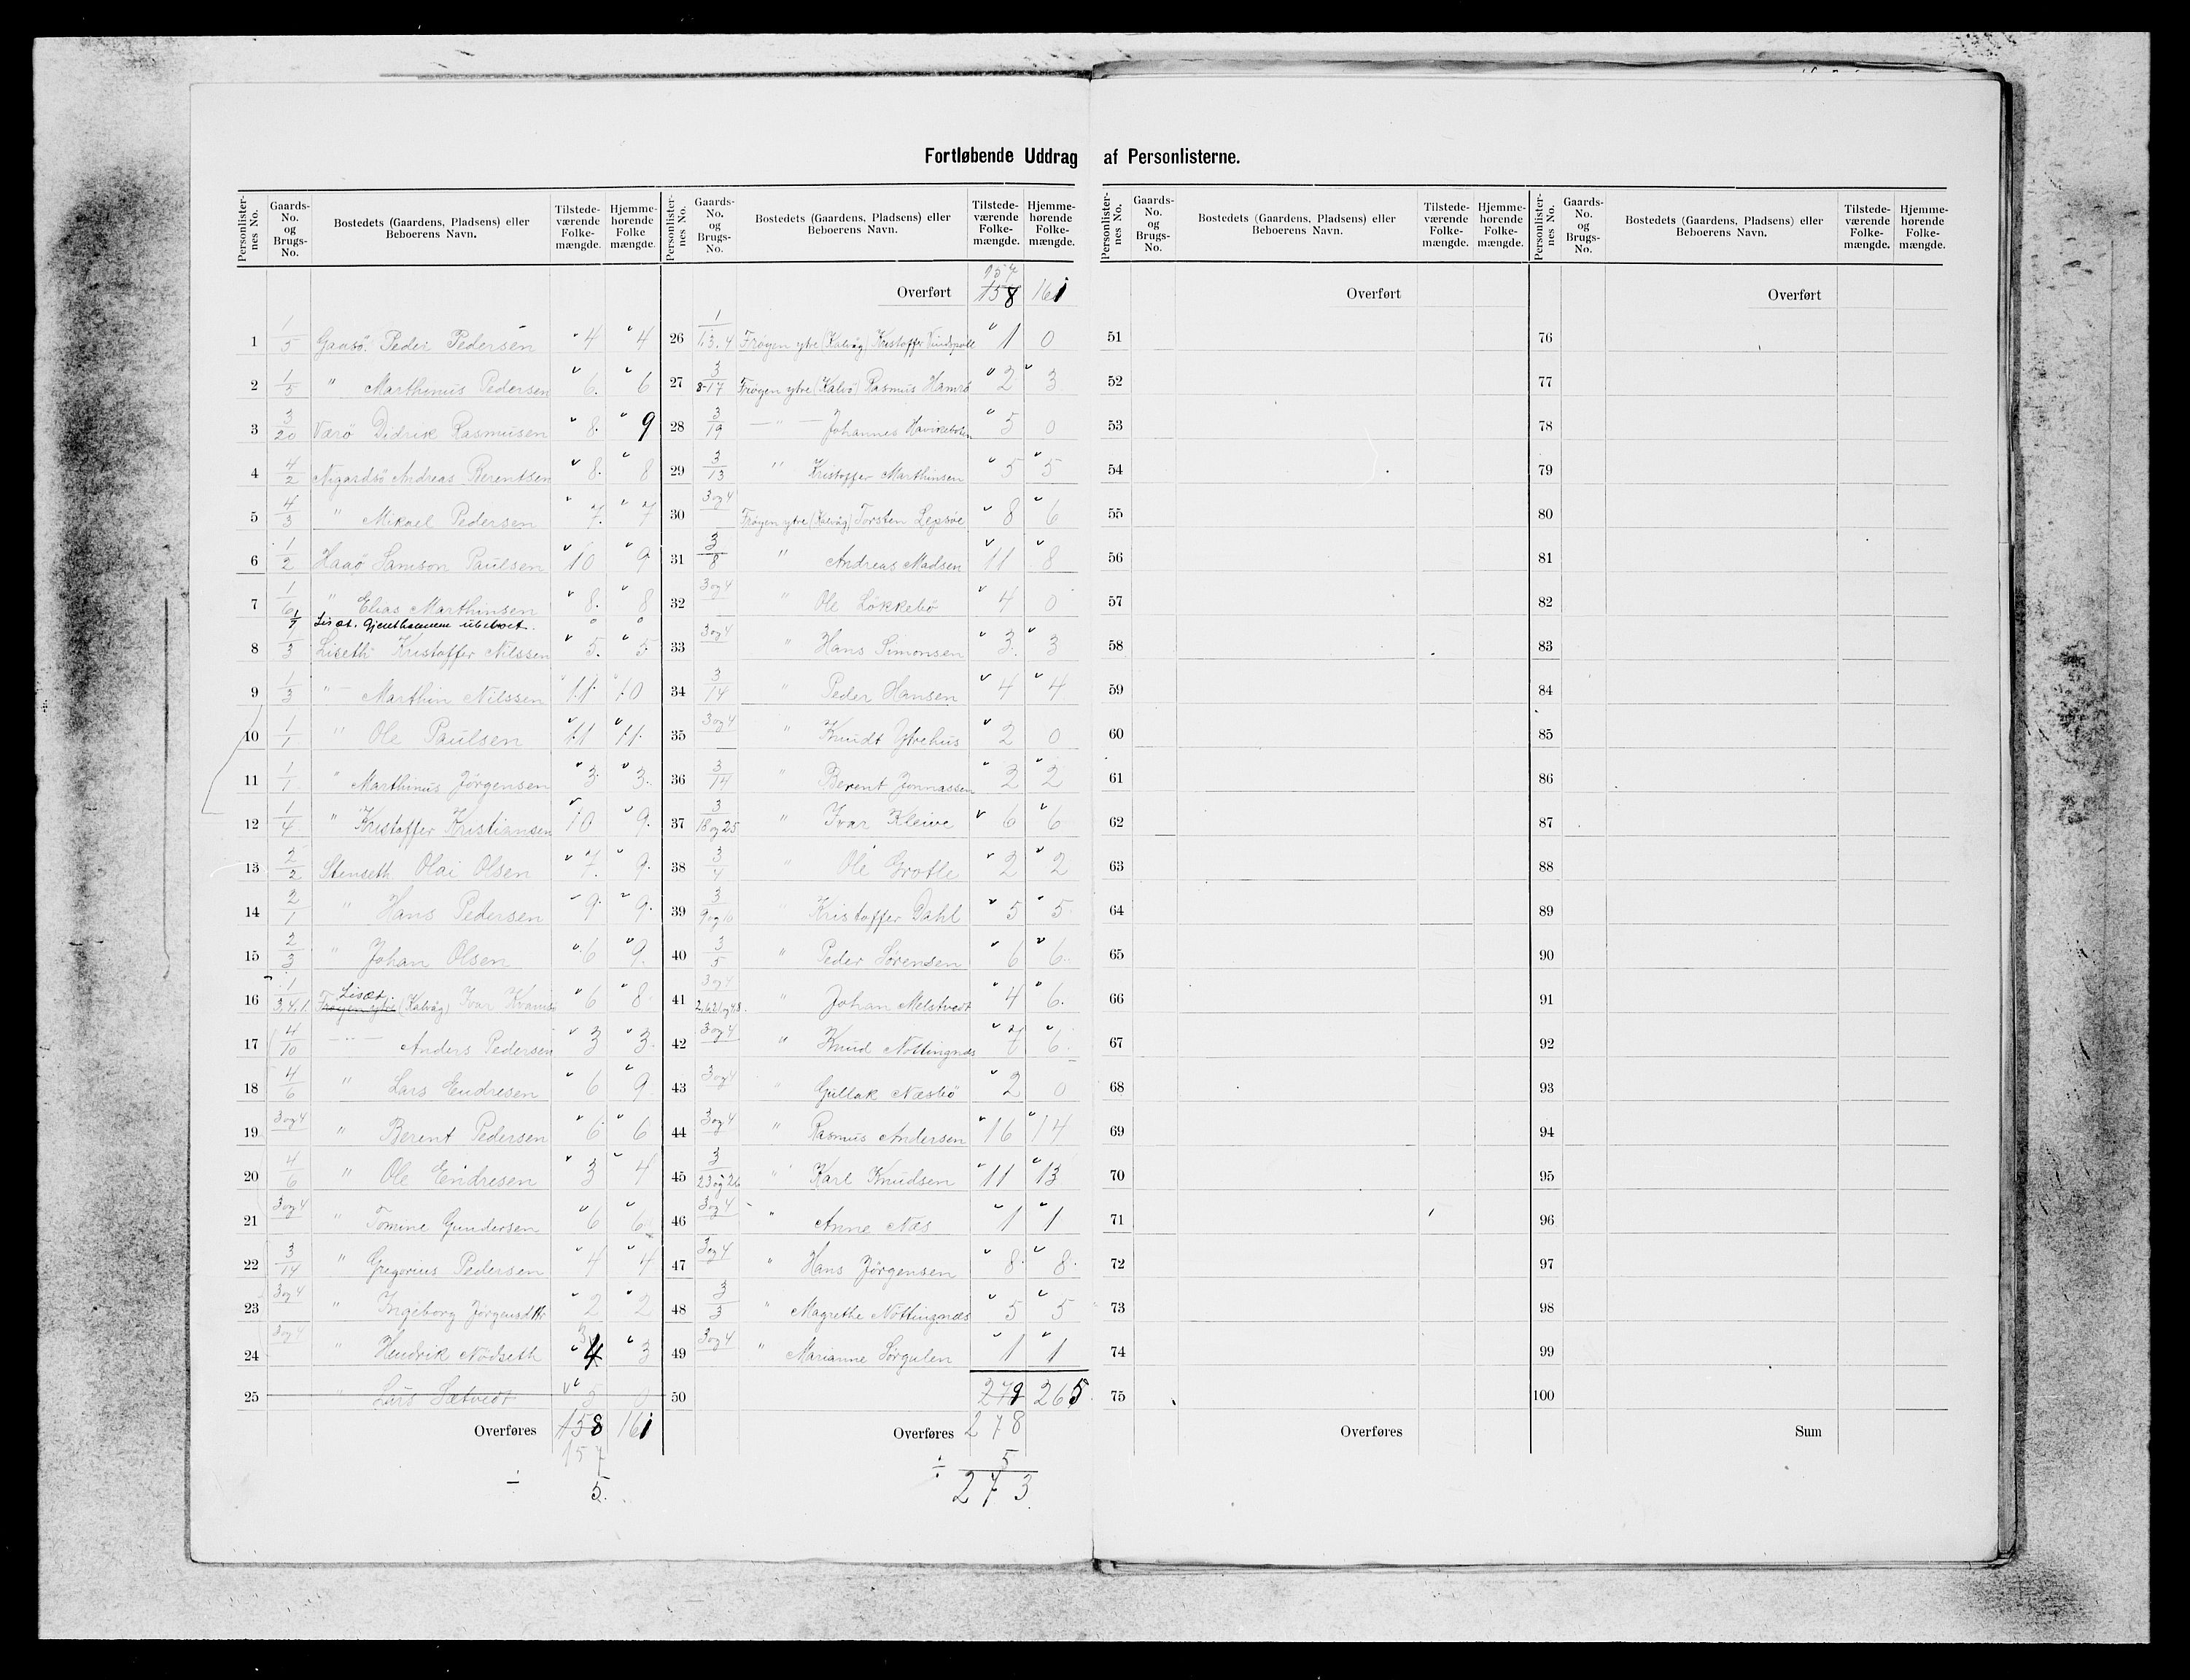 Fortløbende Uddrag af Personlisterne.
Personlisternes No. Gaards-No. og Brugs-No. Bostedets (Gaardens, Pladsens) eller Beboerens Navn. Tilstedeværende Folkemængde. Hjemmehørende Folkemængde.
1 1/5 Gaasö. Peder Pedersen 4 4
2 1/5 " Marthinus Pedersen 6. 6
3 3/20 Værö Didrik Rasmusen 8. 9
4 4/2 Nigardsö Andreas Berentsen 8. 8
5 4/3 " Mikael Pedersen 7. 7
6 1/2 Haaö Samson Paulsen 10 9
7 1/6 " Elias Marthinsen 8. 8
1/7 Liset. ubeboet. 0 0
8 1/3 Liseth Kristoffer Nilssen 5. 5
9 1/3 " Marthin Nilssen 11 10
10 1/1 " Ole Paulsen 11 11
11 1/1 " Marthinus Jörgensen 3 3.
12 1/4 " Kristoffer Kristiansen 10 9.
13 2/2 Stenseth Olai Olsen 7. 9.
14 2/1 " Hans Pedersen 9. 9.
15 2/3 " Johan Olsen 6 9.
16 1/3,4,1 Frøyen ytre Liset. (Kalvåg) Ivar 6 8
17 4/10 — " — Anders Pedersen 3 3.
18 4/6 " Lars Endresen 6 9
19 3 og 4 " Berent Pedersen 6 6
20 4/6 " Ole Endresen 3 4
21 3 og 4 " Tomine Gundersen 6 6
22 3/14 " Gregorius Pedersen 4 4
23 3 og 4 " Ingeborg Jörgensdtr 2 2
24 3 og 4 " Hendrik Nödseth 3 4 3
25 " Lars Sætvedt 5 0
Overføres 158 161
157
÷ 5.
Personlisternes No. Gaards-No. og Brugs-No. Bostedets (Gaardens, Pladsens) eller Beboerens Navn. Tilstedeværende Folkemængde. Hjemmehørende Folkemængde.
157
Overført 158 161
26 1/1.3.4 Frøyen ytre (Kalvåg) Kristoffer 1 0
27 3/8-17 Frøyen ytre (Kalvö) Rasmus Hamre 2 3
28 3/19 — " — Johannes 5 0
29 3/13 " Kristoffer Marthinsen 5 5
30 3 og 4 Frøyen ytre (Kalvåg) Torsten Lepsöe 8 6
31 3/8 " Andreas Madsen 11 8
32 3 og 4 " Ole Lökkebö 4 0
33 3 og 4 " Hans Simonsen 3. 3
34 3/14 " Peder Hansen 4 4
35 3 og 4 " Knudt Ytrehus 2 0
36 3/14 " Berent Jonnassen 2 2
37 3/18 og 25 " Ivar Kleive 6 6
38 3/4 " Ole Grotle 2 2
39 3/9 og 16 " Kristoffer Dahl 5 5
40 3/5 " Peder Sörensen 6 6.
41 3 og 4 " Johan Melstvedt 4 6.
42 3 og 4 " Knud Nottingnæs 7 6
43 3 og 4 " Gullak Næsbö 2 0
44 3 og 4 " Rasmus Andersen 16 14
45 3/23 og 26 " Karl Knudsen 11 13
46 3 og 4 " Anne Næs 1 1
47 3 og 4 " Hans Jörgensen 8 8.
48 3/3 " Magrethe Nottingnæs 5 5
49 3 og 4 " Marianne Sörgulen 1 1
50 279 265
Overføres 278
÷ 5
273.
Personlisternes No. Gaards-No. og Brugs-No. Bostedets (Gaardens, Pladsens) eller Beboerens Navn. Tilstedeværende Folkemængde. Hjemmehørende Folkemængde.
Overført
51
52
53
54
55
56
57
58
59
60
61
62
63
64
65
66
67
68
69
70
71
72
73
74
75
Overføres
Personlisternes No. Gaards-No. og Brugs-No. Bostedets (Gaardens, Pladsens) eller Beboerens Navn. Tilstedeværende Folkemængde. Hjemmehørende Folkemængde.
Overført
76
77
78
79
80
81
82
83
84
85
86
87
88
89
90
91
92
93
94
95
96
97
98
99
100
Sum